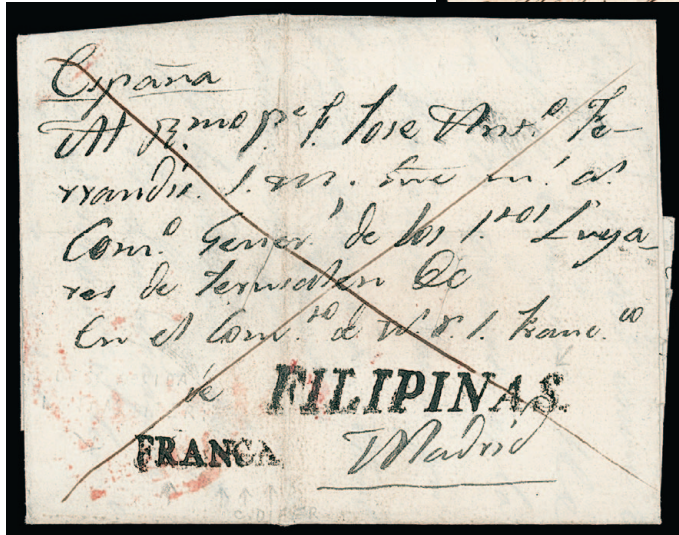 España
Al R.mo pe. f. Jose Ant.o Fe-
rrandis. S. M.
Com.o Gener.l de los S.tos Luga-
res de Jerusalen &c
En el Conv.to de N. P. S. Franc.co
de FILIPINAS.
FRANCA Madrid